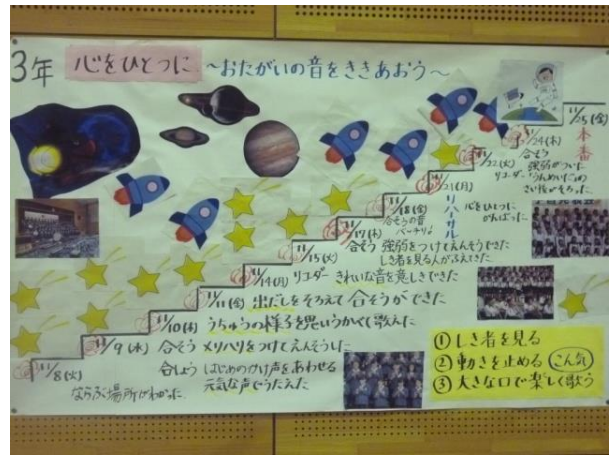 3年 心をひとつに ～おたがいの音をききあおう～
11/25(金)
本番
11/24(木)
合そう
強弱がついた
11/22(火)
11/21(月)
リハーサル
心をひとつに
がんばった
11/18(金)
合そうの音
バッチリ!
11/17(木)
合そう 強弱をつけてえんそうできた
しき者を見る人がふえてきた
11/15(火)
11/14(月) リコーダー きれいな音を意しきできた
11/11(金) 出だしをそろえて合そうができた
11/10(木) うちゅうの様子を思いうかべて歌えた
11/9(水) 合そう メリハリをつけてえんそうした
合しょう はじめのかけ声をあわせる
元気な声でうたえた
11/8(火)
ならぶ場所がわかった
① しき者を見る
② 動きを止める こん気
③ 大きな口で楽しく歌う